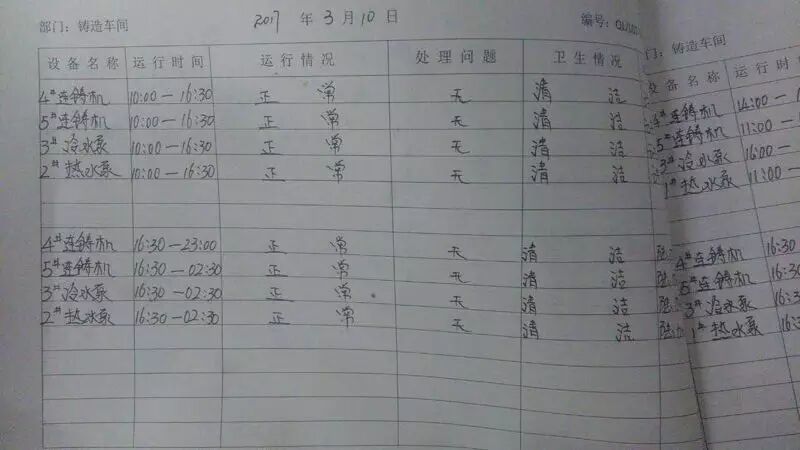 部门：铸造车间 2017 年 3 月 10 日 编号：
设备名称 运行时间 运行情况 处理问题 卫生情况
4#连铸机 10:00—16:30 正常 无 清洁
5#连铸机 10:00—16:30 正常 无 清洁
3#冷水泵 10:00—16:30 正常 无 清洁
2#热水泵 10:00—16:30 正常 无 清洁
4#连铸机 16:30—23:00 正常 无 清洁
5#连铸机 16:30—02:30 正常 无 清洁
3#冷水泵 16:30—02:30 正常 无 清洁
2#热水泵 16:30—02:30 正常 无 清洁
门：铸造车间
设备名称 运行时
4#连铸机 14:00—
5#连铸机 11:00—
3#冷水泵 16:00—
1#热水泵 11:00—
4#连铸机 16:30
5#连铸机 16:30
3#冷水泵 16:3
1#热水泵 16:3